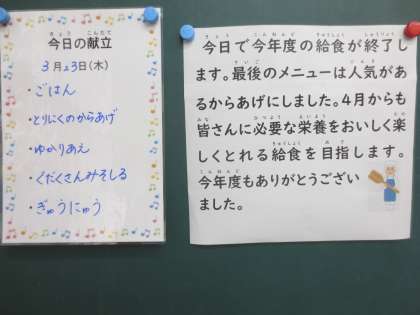 今日の献立
3月23日(木)
・ごはん
・とりにくのからあげ
・ゆかりあえ
・くだくさんみそしる
・ぎゅうにゅう
今日で今年度の給食が終了し
ます。最後のメニューは人気があ
るからあげにしました。4月からも
皆さんに必要な栄養をおいしく楽
しくとれる給食を目指します。
今年度もありがとうござい
ました。